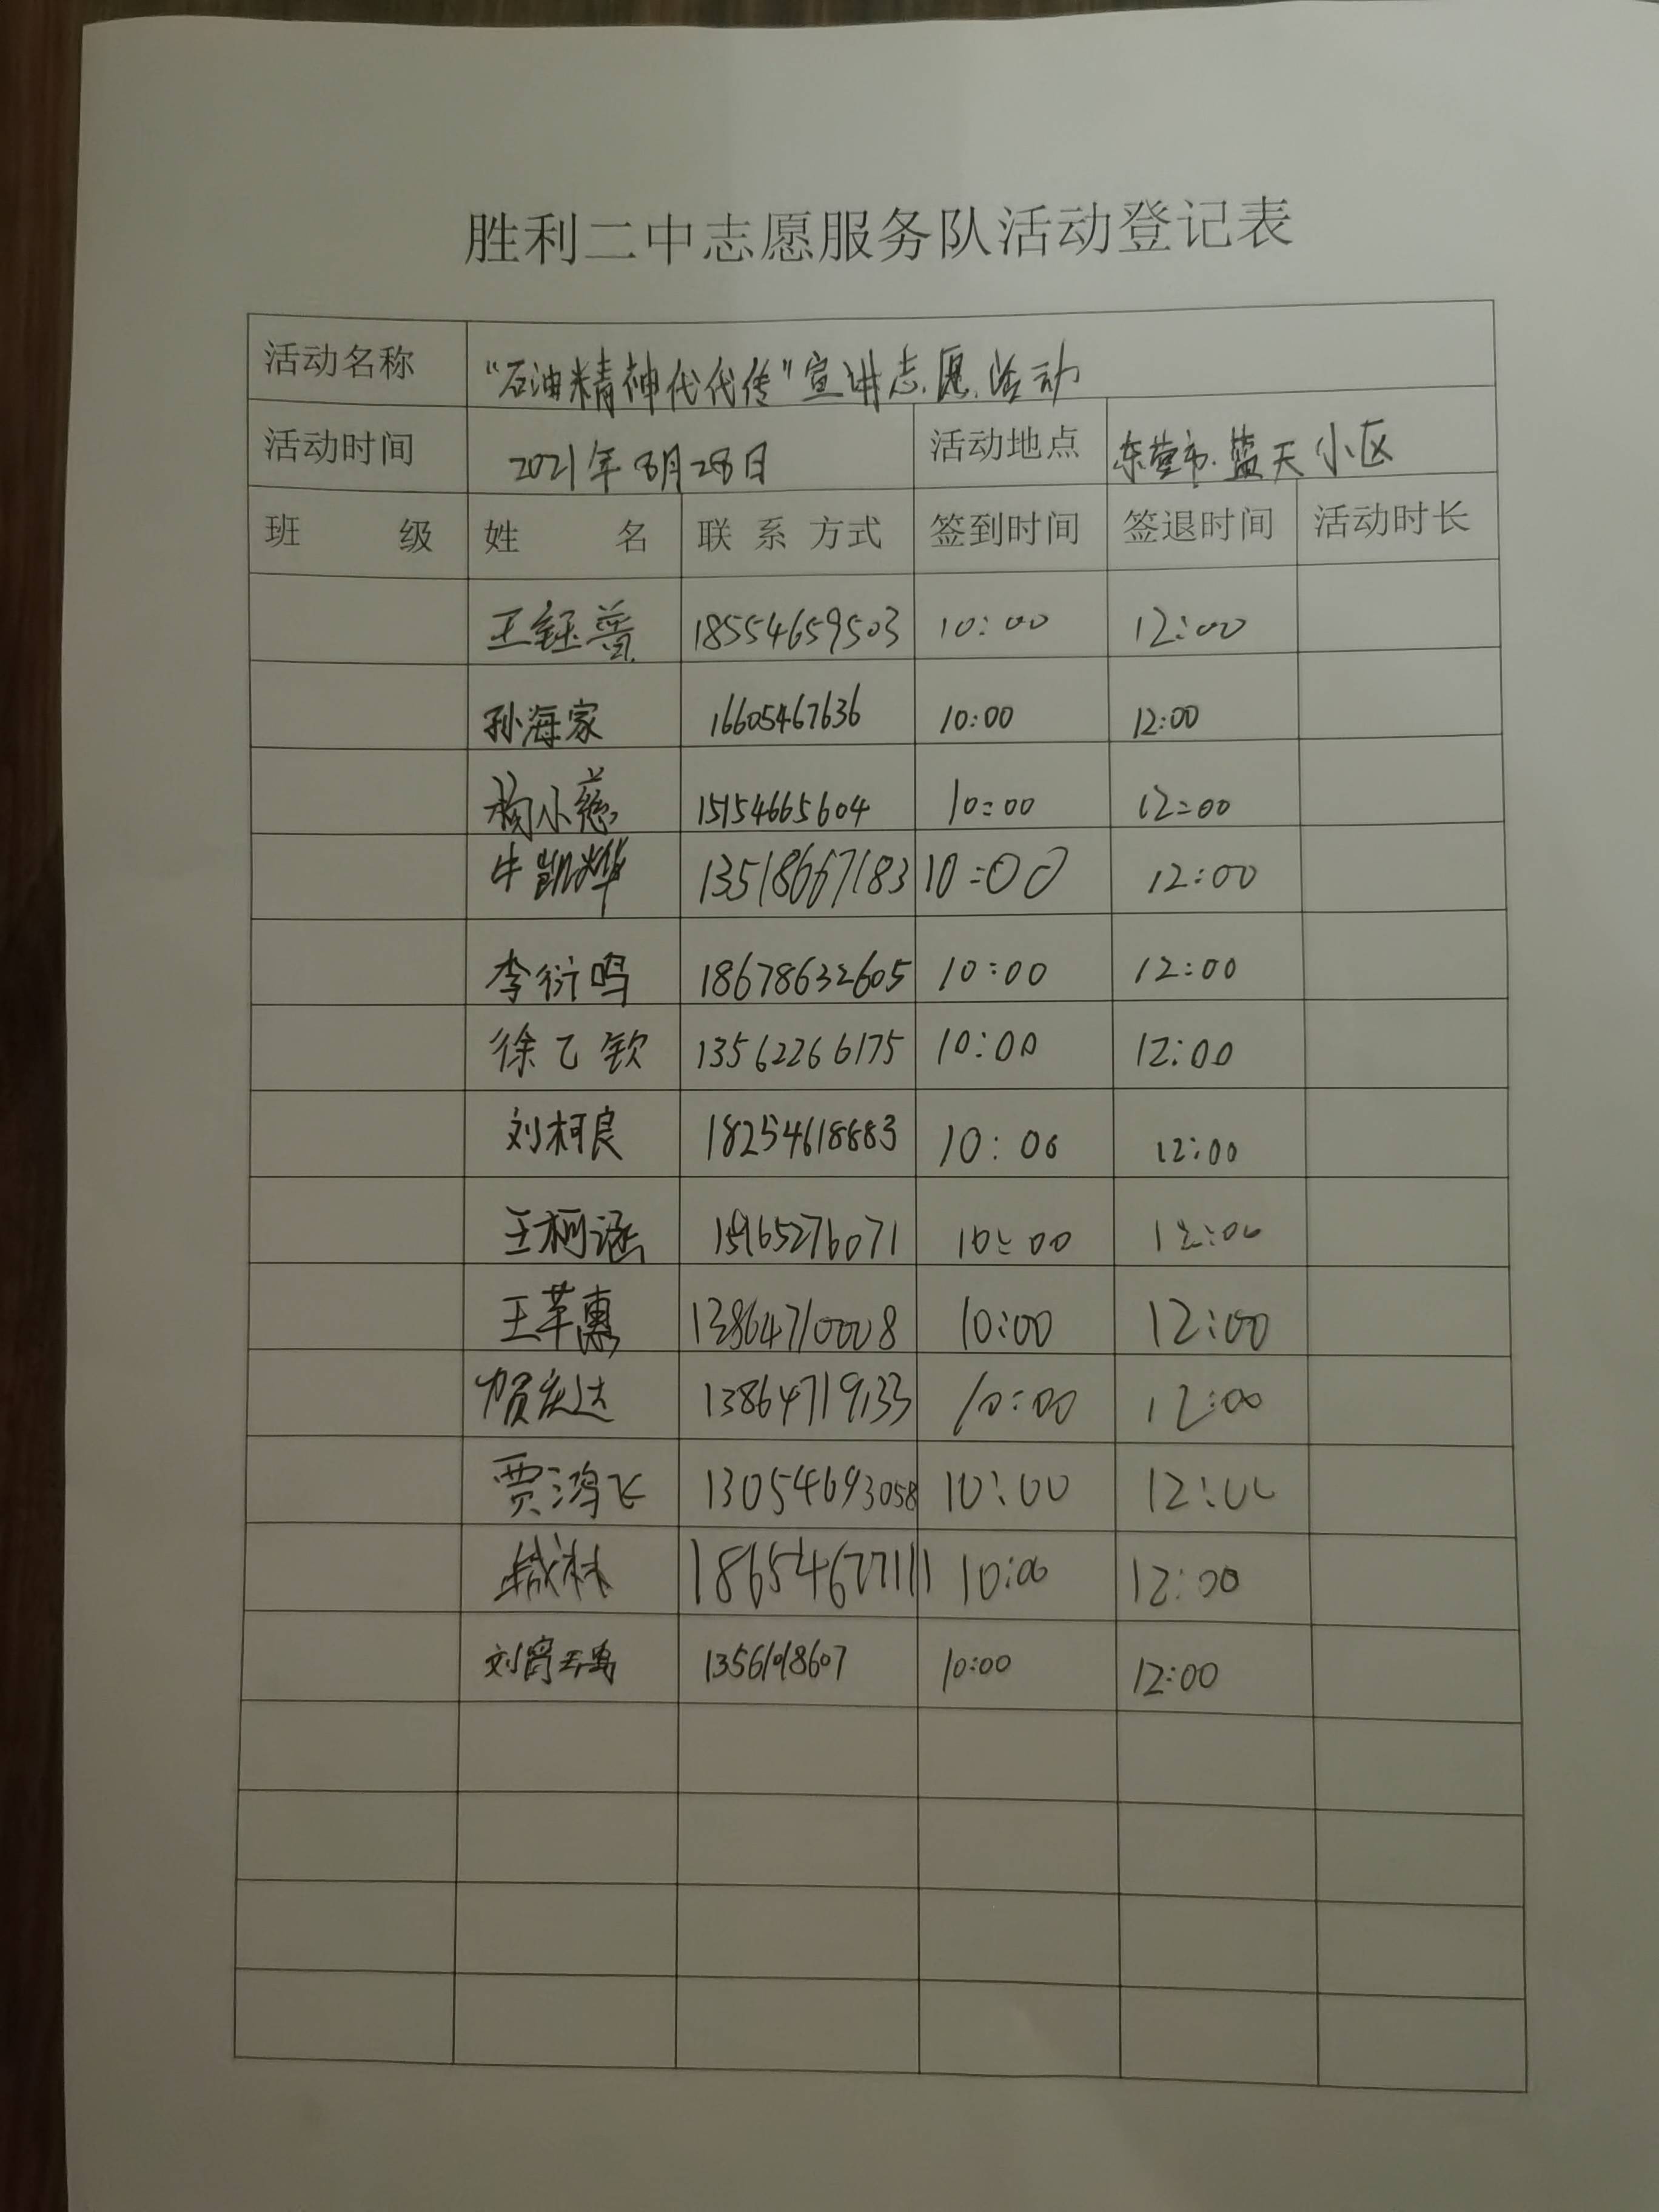 胜利二中志愿服务队活动登记表
活动名称 “石油精神代代传”宣讲志愿活动
活动时间 2021年8月28日 活动地点 东营市蓝天小区
班 级 姓 名 联系方式 签到时间 签退时间 活动时长
王钰 18554659503 10:00 12:00
孙海家 16605467636 10:00 12:00
杨小慈 15154665604 10:00 12:00
牛凯烨 13518667183 10:00 12:00
李衍鸣 18678632605 10:00 12:00
徐乙钦 13562266175 10:00 12:00
刘柯良 18254618883 10:00 12:00
王柯涵 10:00 12:00
王苹惠 13864710008 10:00 12:00
贺庆达 13864719133 10:00 12:00
贾鸿飞 13054693058 10:00 12:00
18654677111 10:00 12:00
刘 10:00 12:00